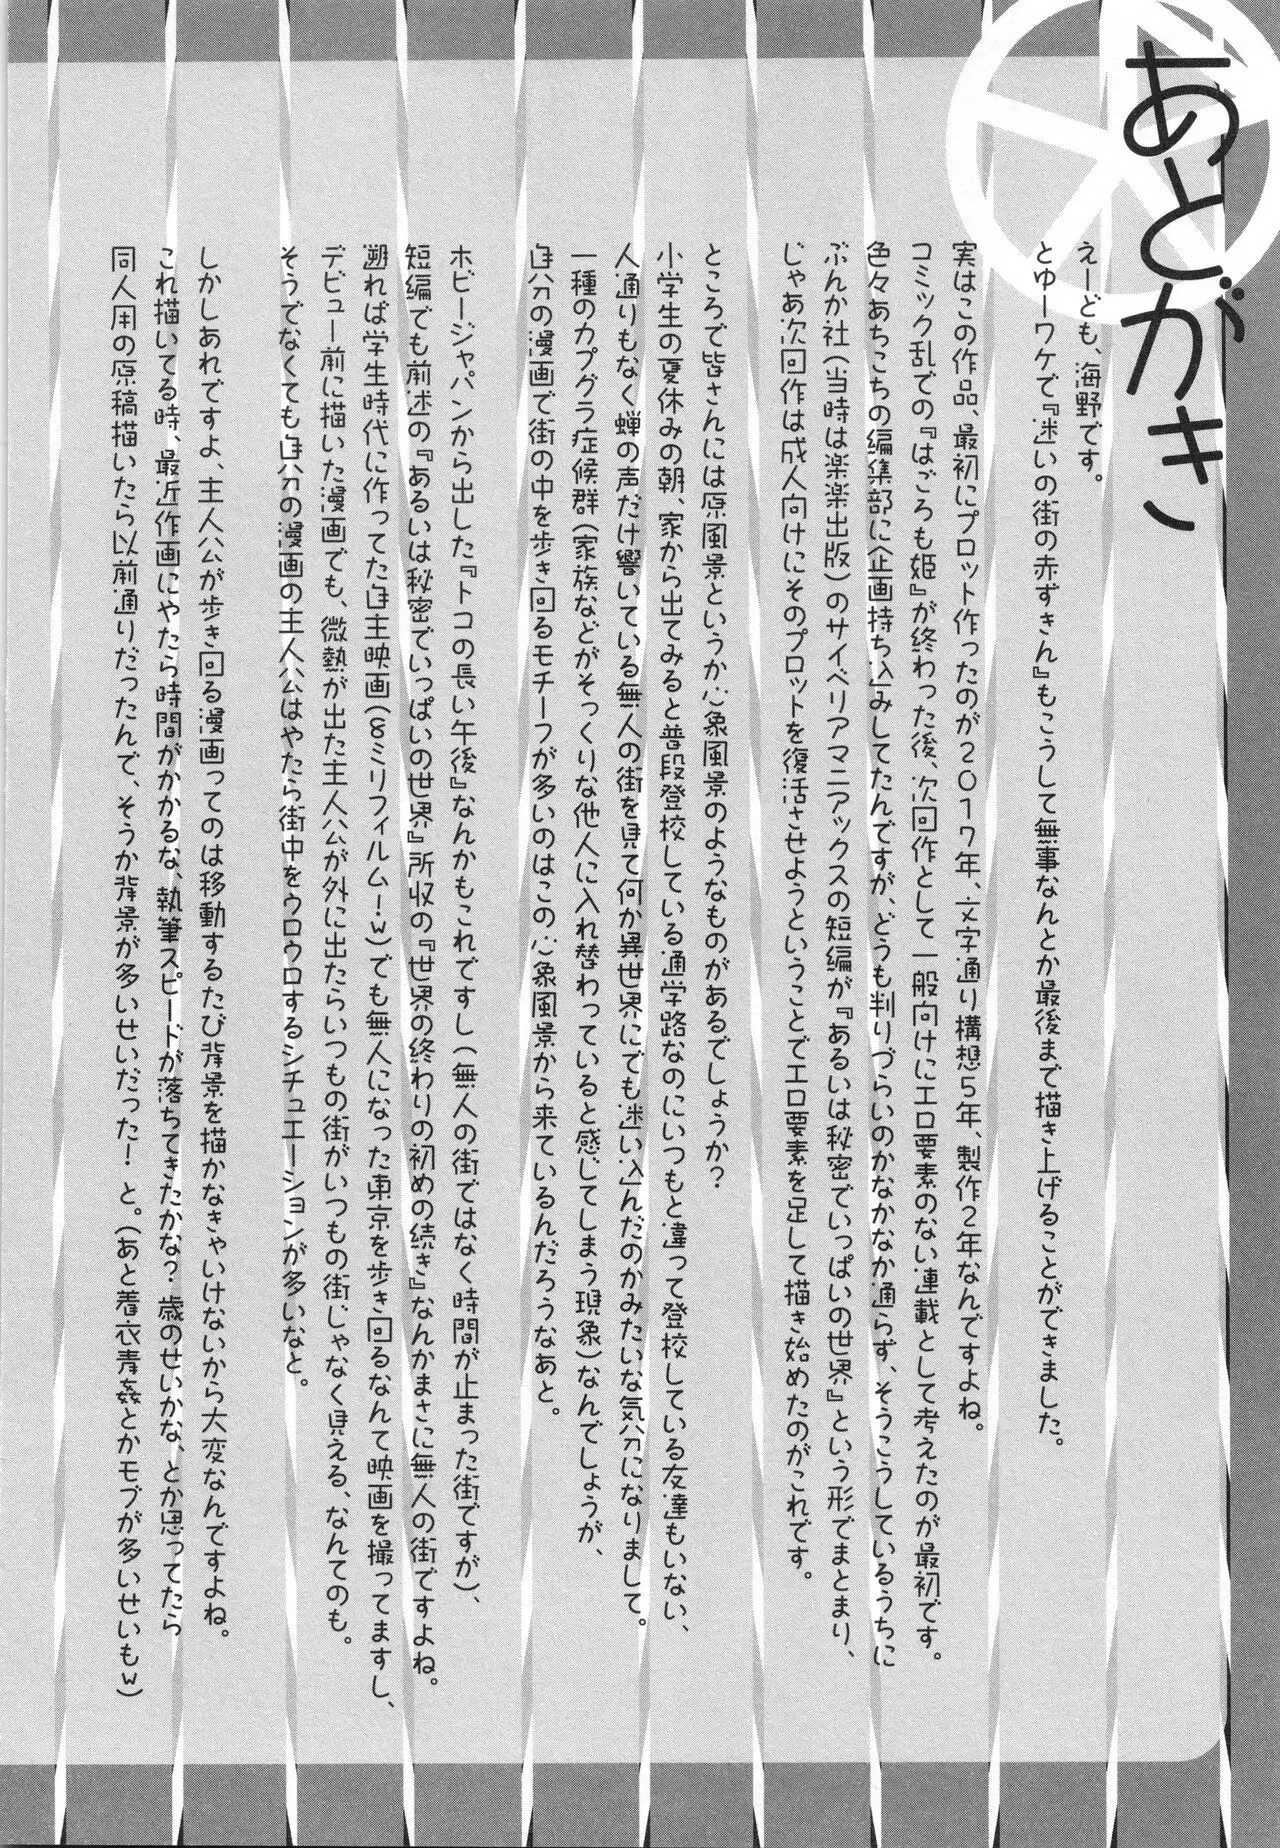 あとがき
えーども、海野です。
とゆーワケで『迷いの街の赤ずきん』もこうして無事なんとか最後まで描き上げることができました。
実はこの作品、最初にプロット作ったのが2017年、文字通り構想5年、製作2年なんですよね。
コミック乱での『はごろも姫』が終わった後、次回作として一般向けにエロ要素のない連載として考えたのが最初です。
色々あちこちの編集部に企画持ち込みしてたんですが、どうも判りづらいのかなかなか通らず、そうこうしているうちに
ぶんか社(当時は楽楽出版)のサイベリアマニアックスの短編が『あるいは秘密でいっぱいの世界』という形でまとまり、
じゃあ次回作は成人向けにそのプロットを復活させようということでエロ要素を足して描き始めたのがこれです。
ところで皆さんには原風景というか心象風景のようなものがあるでしょうか?
小学生の夏休みの朝、家から出てみると普段登校している通学路なのにいつもと違って登校している友達もいない、
人通りもなく蝉の声だけ響いている無人の街を見て何か異世界にでも迷い込んだのかみたいな気分になりまして。
一種のカプグラ症候群(家族などがそっくりな他人に入れ替わっていると感じてしまう現象)なんでしょうが、
自分の漫画で街の中を歩き回るモチーフが多いのはこの心象風景から来ているんだろうなあと。
ホビージャパンから出した『トコの長い午後』なんかもこれですし(無人の街ではなく時間が止まった街ですが)、
短編でも前述の『あるいは秘密でいっぱいの世界』所収の『世界の終わりの初めの続き』なんかまさに無人の街ですよね。
遡れば学生時代に作ってた自主映画(8ミリフィルム!w)でも無人になった東京を歩き回るなんて映画を撮ってますし、
デビュー前に描いた漫画でも、微熱が出た主人公が外に出たらいつもの街がいつもの街じゃなく見える、なんてのも。
そうでなくても自分の漫画の主人公はやたら街中をウロウロするシチュエーションが多いなと。
しかしあれですよ、主人公が歩き回る漫画ってのは移動するたび背景を描かなきゃいけないから大変なんですよね。
これ描いてる時、最近作画にやたら時間がかかるな、執筆スピードが落ちてきたかな?歳のせいかな、とか思ってたら
同人用の原稿描いたら以前通りだったんで、そうか背景が多いせいだった!と。(あと着衣青姦とかモブが多いせいもw)